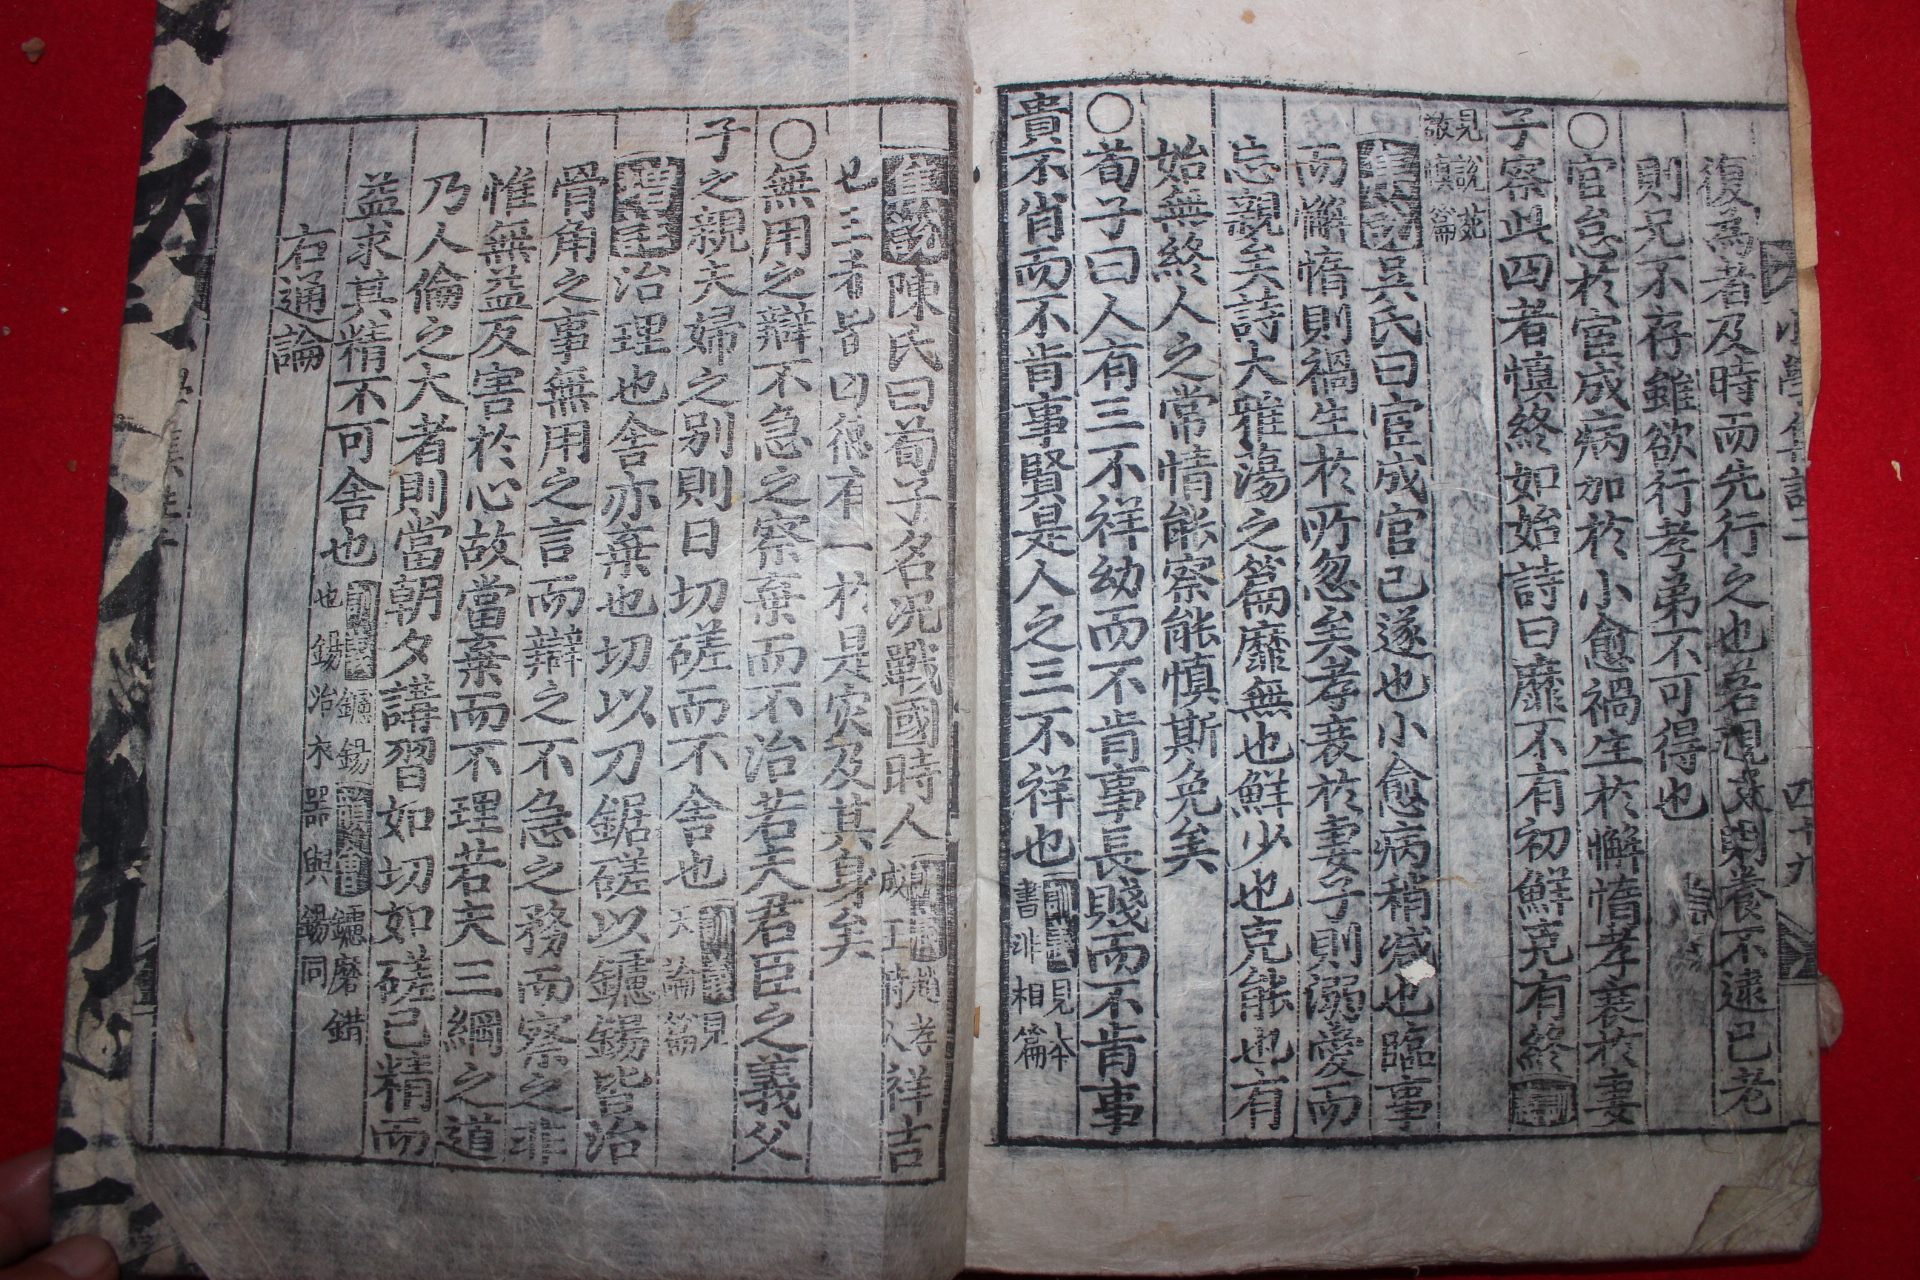 復爲者及時而先行之也若親戚旣歿不逮已老
則兄不存雖欲行孝弟不可得也
○官怠於宦成病加於小愈禍生於懈惰孝衰於妻
子察此四者愼終如始詩曰靡不有初鮮克有終
見說苑
敬愼篇
集說吳氏曰宦成官已遂也小愈病稍減也臨事
而懈惰則禍生於所忽矣孝衰於妻子則溺愛而
忘親矣詩大雅蕩之篇靡無也鮮少也克能也有
始無終人之常情能察能愼斯免矣
○荀子曰人有三不祥幼而不肯事長賤而不肯事
貴不肖而不肯事賢是人之三不祥也
見本
書非相篇
集說陳氏曰荀子名况戰國時人祥吉
也三者皆凶德有一於是災及其身矣
○無用之辯不急之察棄而不治若夫君臣之義父
子之親夫婦之別則日切磋而不舍也
見
天論篇
增註治理也舍亦棄也切以刀鋸磋以鑢鐋皆治
骨角之事無用之言而辯之不急之務而察之非
惟無益反害於心故當棄而不理若夫三綱之道
乃人倫之大者則當朝夕講習如切如磋已精而
益求其精不可舍也
鑢鐋
鑢磨錯
也鐋治木器與鐋同
右通論
小學集註二
四十九